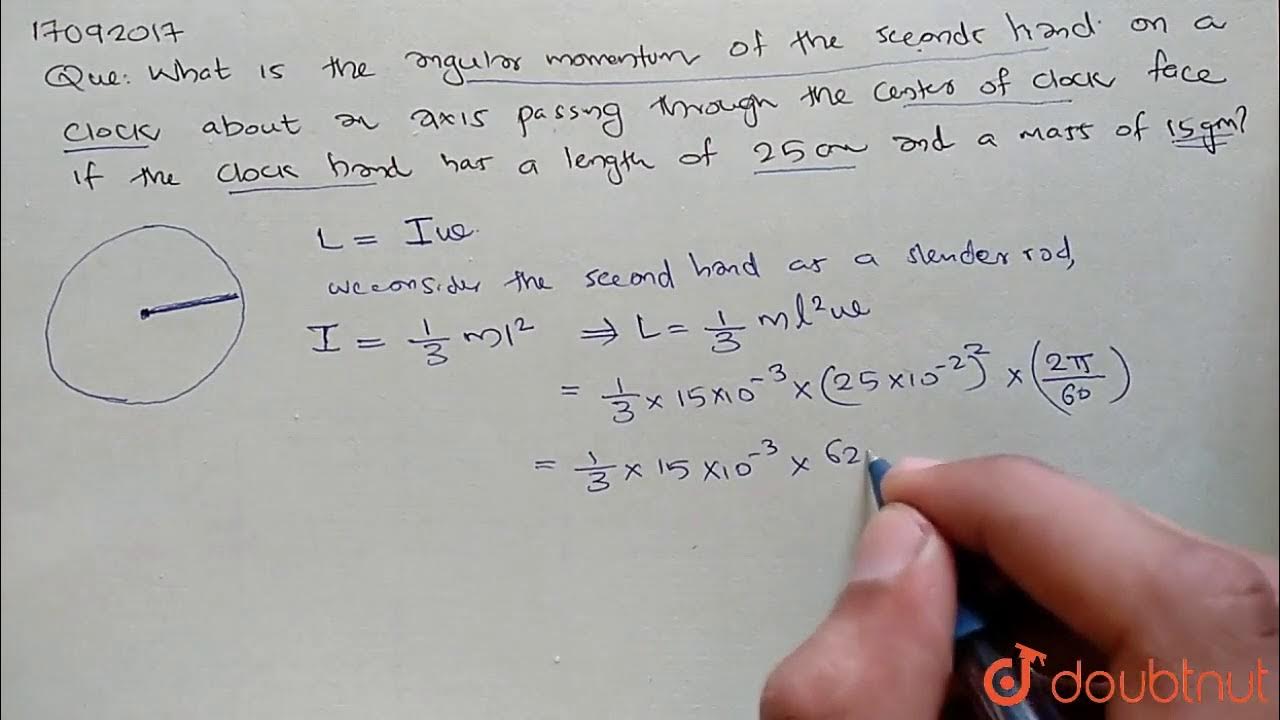 17092017
Que: What is the angular momentum of the seconds hand on a
clock about an axis passing through the center of clock face
if the clock hand has a length of 25 cm and a mass of 15gm?
L = Iω.
we consider the second hand as a slender rod,
I = 1/3 ml² ⇒ L = 1/3 ml²ω
= 1/3 × 15×10⁻³ × (25×10⁻²)² × (2π/60)
= 1/3 × 15×10⁻³ × 62
doubtnut